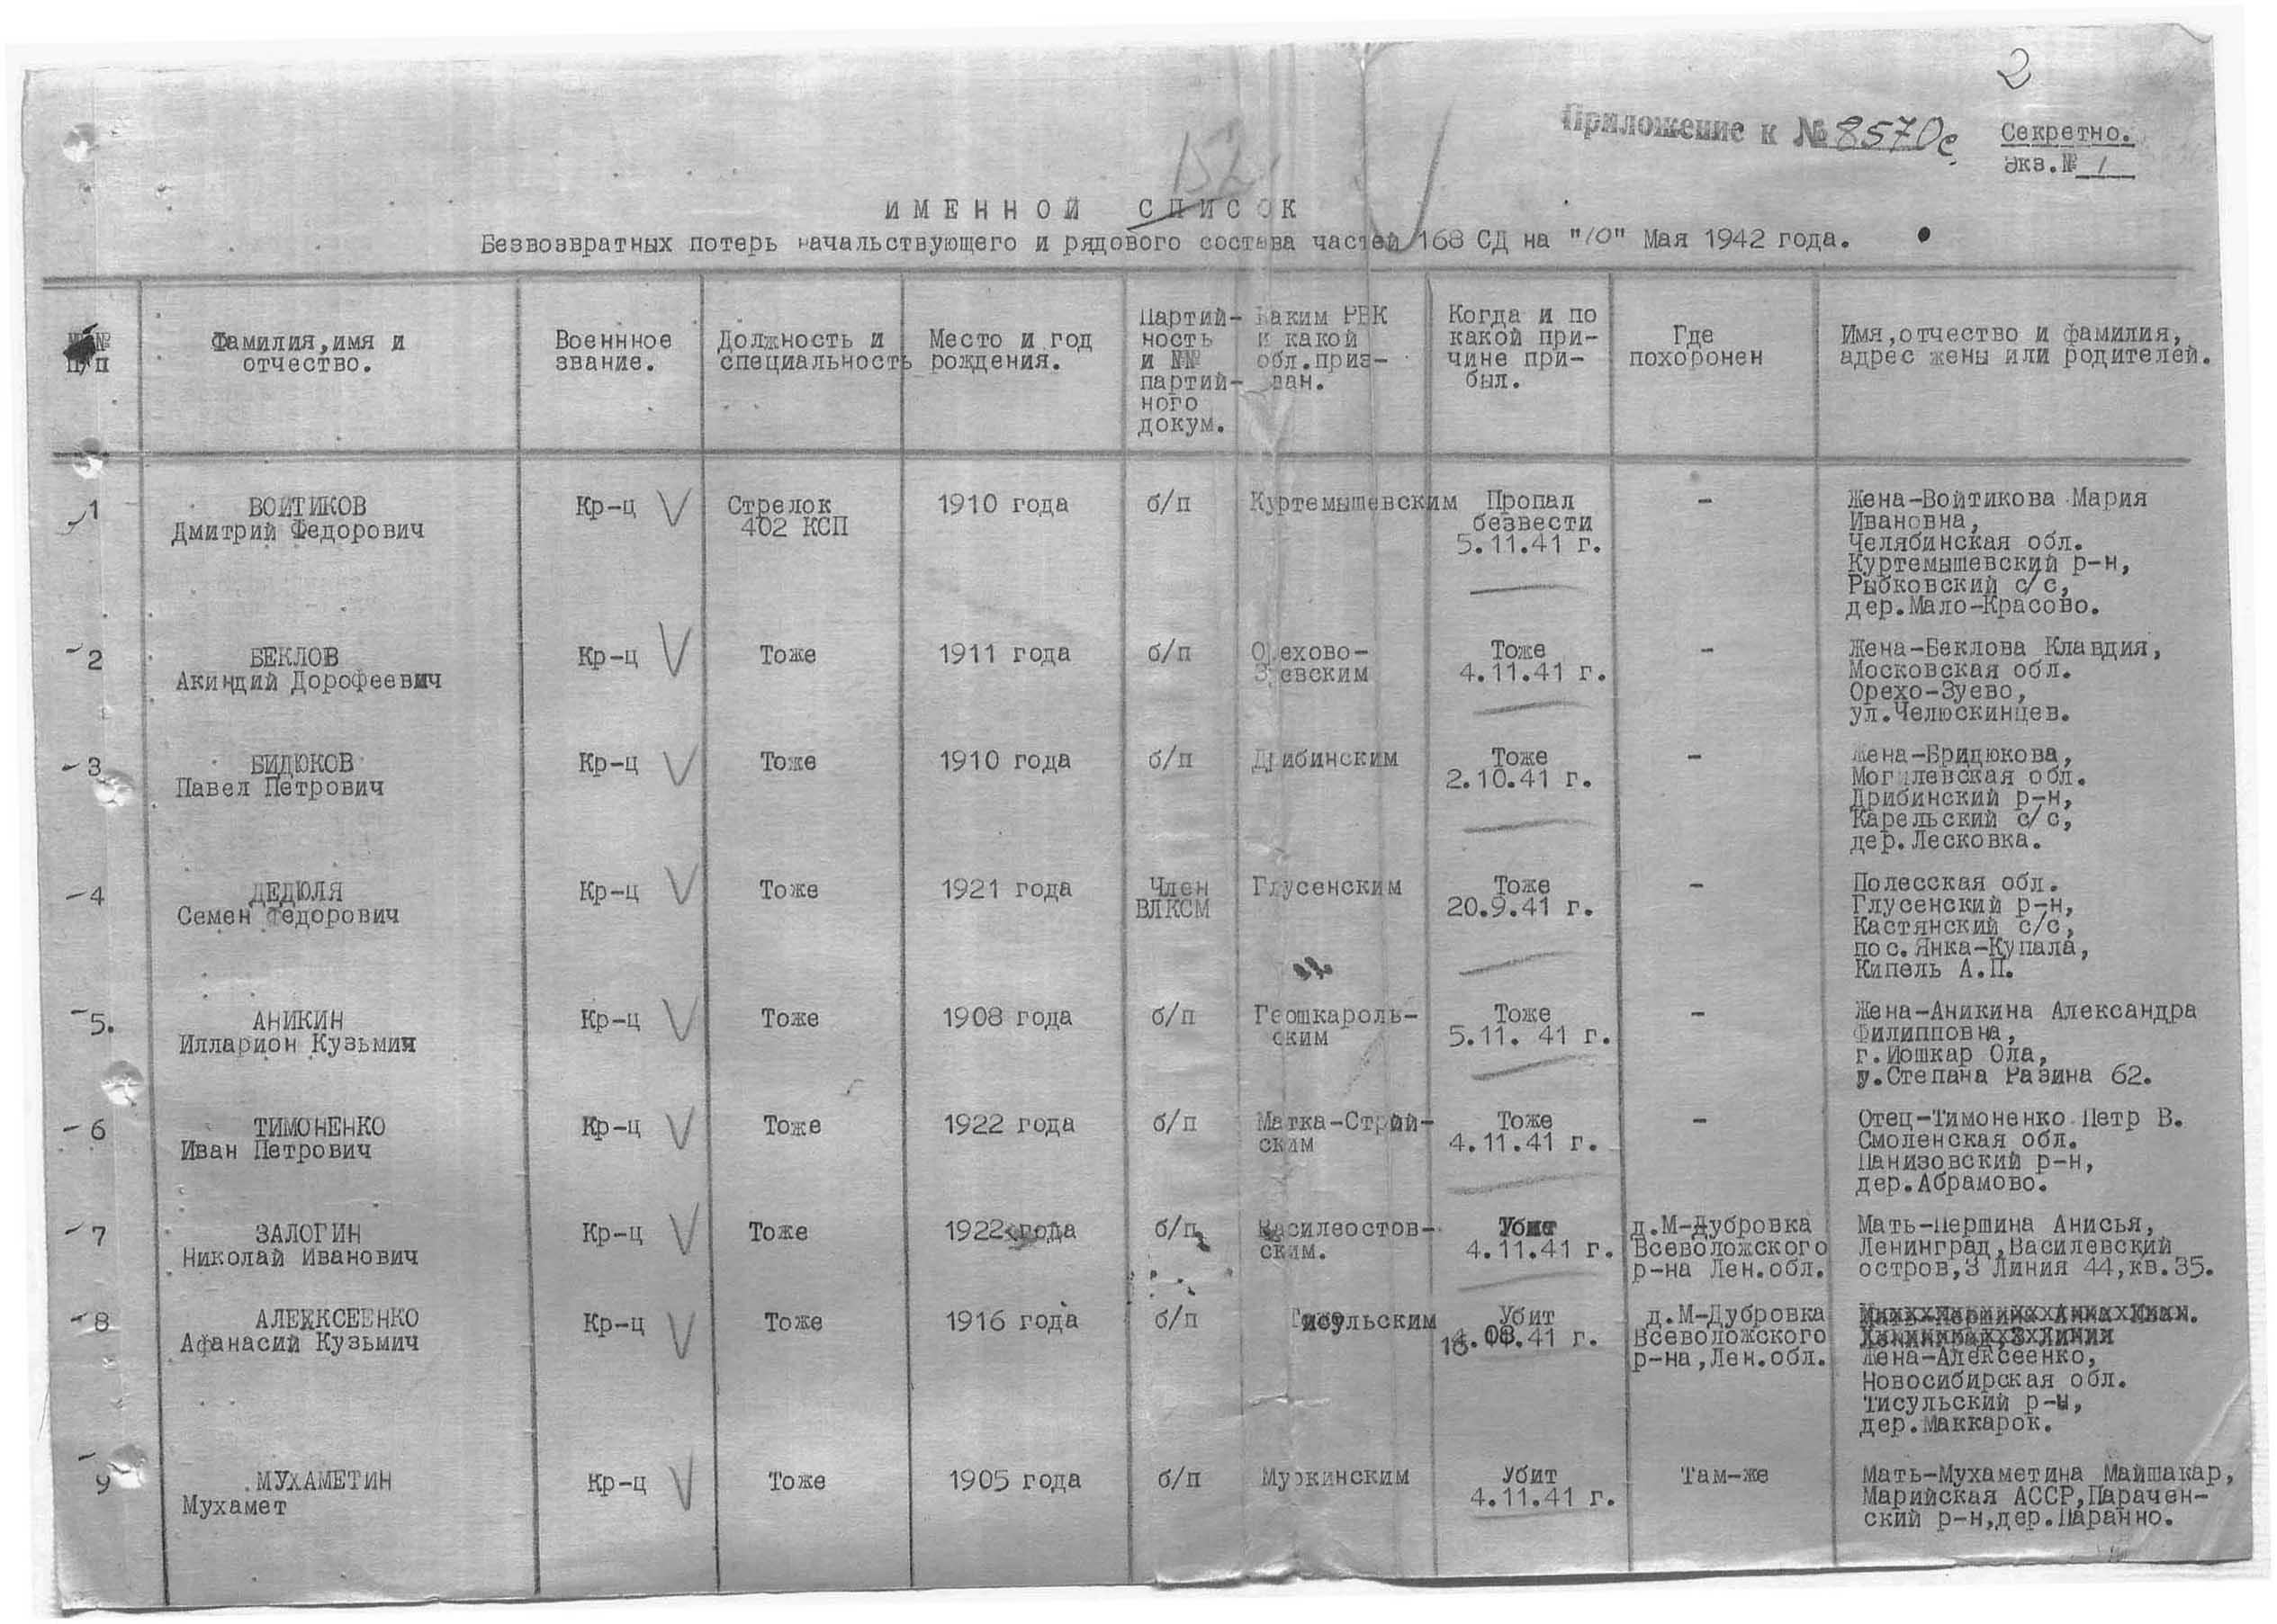 2
Приложение к № 8570с
Секретно.
Экз.№ 1
152
ИМЕННОЙ СПИСОК
Безвозвратных потерь начальствующего и рядового состава частей 168 СД на "10" Мая 1942 года.
№№ п/п
Фамилия,имя и отчество.
Военнное звание.
Должность и специальность
Место и год рождения.
Партий-ность и №№ партий-ного докум.
Каким РВК и какой обл.приз-ван.
Когда и по какой при-чине при-был.
Где похоронен
Имя,отчество и фамилия, адрес жены или родителей.
1
ВОЙТИКОВ
Дмитрий Федорович
Кр-ц
Стрелок
402 КСП
1910 года
б/п
Куртемышевским
Пропал
безвести
5.11.41 г.
-
Жена-Войтикова Мария
Ивановна,
Челябинская обл.
Куртемышевский р-н,
Рыбковский с/с,
дер.Мало-Красово.
2
БЕКЛОВ
Акиндий Дорофеевич
Кр-ц
Тоже
1911 года
б/п
Орехово-
Зуевским
Тоже
4.11.41 г.
-
Жена-Беклова Клавдия,
Московская обл.
Орехо-Зуево,
ул.Челюскинцев.
3
БИДЮКОВ
Павел Петрович
Кр-ц
Тоже
1910 года
б/п
Дрибинским
Тоже
2.10.41 г.
-
Жена-Бридюкова,
Могилевская обл.
Дрибинский р-н,
Карельский с/с,
дер.Лесковка.
4
ДЕДЮЛЯ
Семен Федорович
Кр-ц
Тоже
1921 года
Член
ВЛКСМ
Глусенским
Тоже
20.9.41 г.
-
Полесская обл.
Глусенский р-н,
Кастянский с/с,
пос.Янка-Купала,
Кипель А.П.
5.
АНИКИН
Илларион Кузьмич
Кр-ц
Тоже
1908 года
б/п
Геошкароль-
ским
Тоже
5.11. 41 г.
-
Жена-Аникина Александра
Филипповна,
г.Йошкар Ола,
у.Степана Разина 62.
6
ТИМОНЕНКО
Иван Петрович
Кр-ц
Тоже
1922 года
б/п
Матка-Стрий-
ским
Тоже
4.11.41 г.
-
Отец-Тимоненко Петр В.
Смоленская обл.
Панизовский р-н,
дер.Абрамово.
7
ЗАЛОГИН
Николай Иванович
Кр-ц
Тоже
1922 года
б/п
Василеостов-
ским.
Убит
4.11.41 г.
д.М-Дубровка
Всеволожского
р-на Лен.обл.
Мать-Першина Анисья,
Ленинград,Василевский
остров,3 Линия 44,кв.35.
8
АЛЕКСЕЕНКО
Афанасий Кузьмич
Кр-ц
Тоже
1916 года
б/п
Тисульским
Убит
18.08.41 г.
д.М-Дубровка
Всеволожского
р-на,Лен.обл.
Жена-Алексеенко,
Новосибирская обл.
Тисульский р-н,
дер.Маккарок.
9
МУХАМЕТИН
Мухамет
Кр-ц
Тоже
1905 года
б/п
Муркинским
Убит
4.11.41 г.
Там-же
Мать-Мухаметина Майшакар,
Марийская АССР,Парачен-
ский р-н,дер.Паранно.